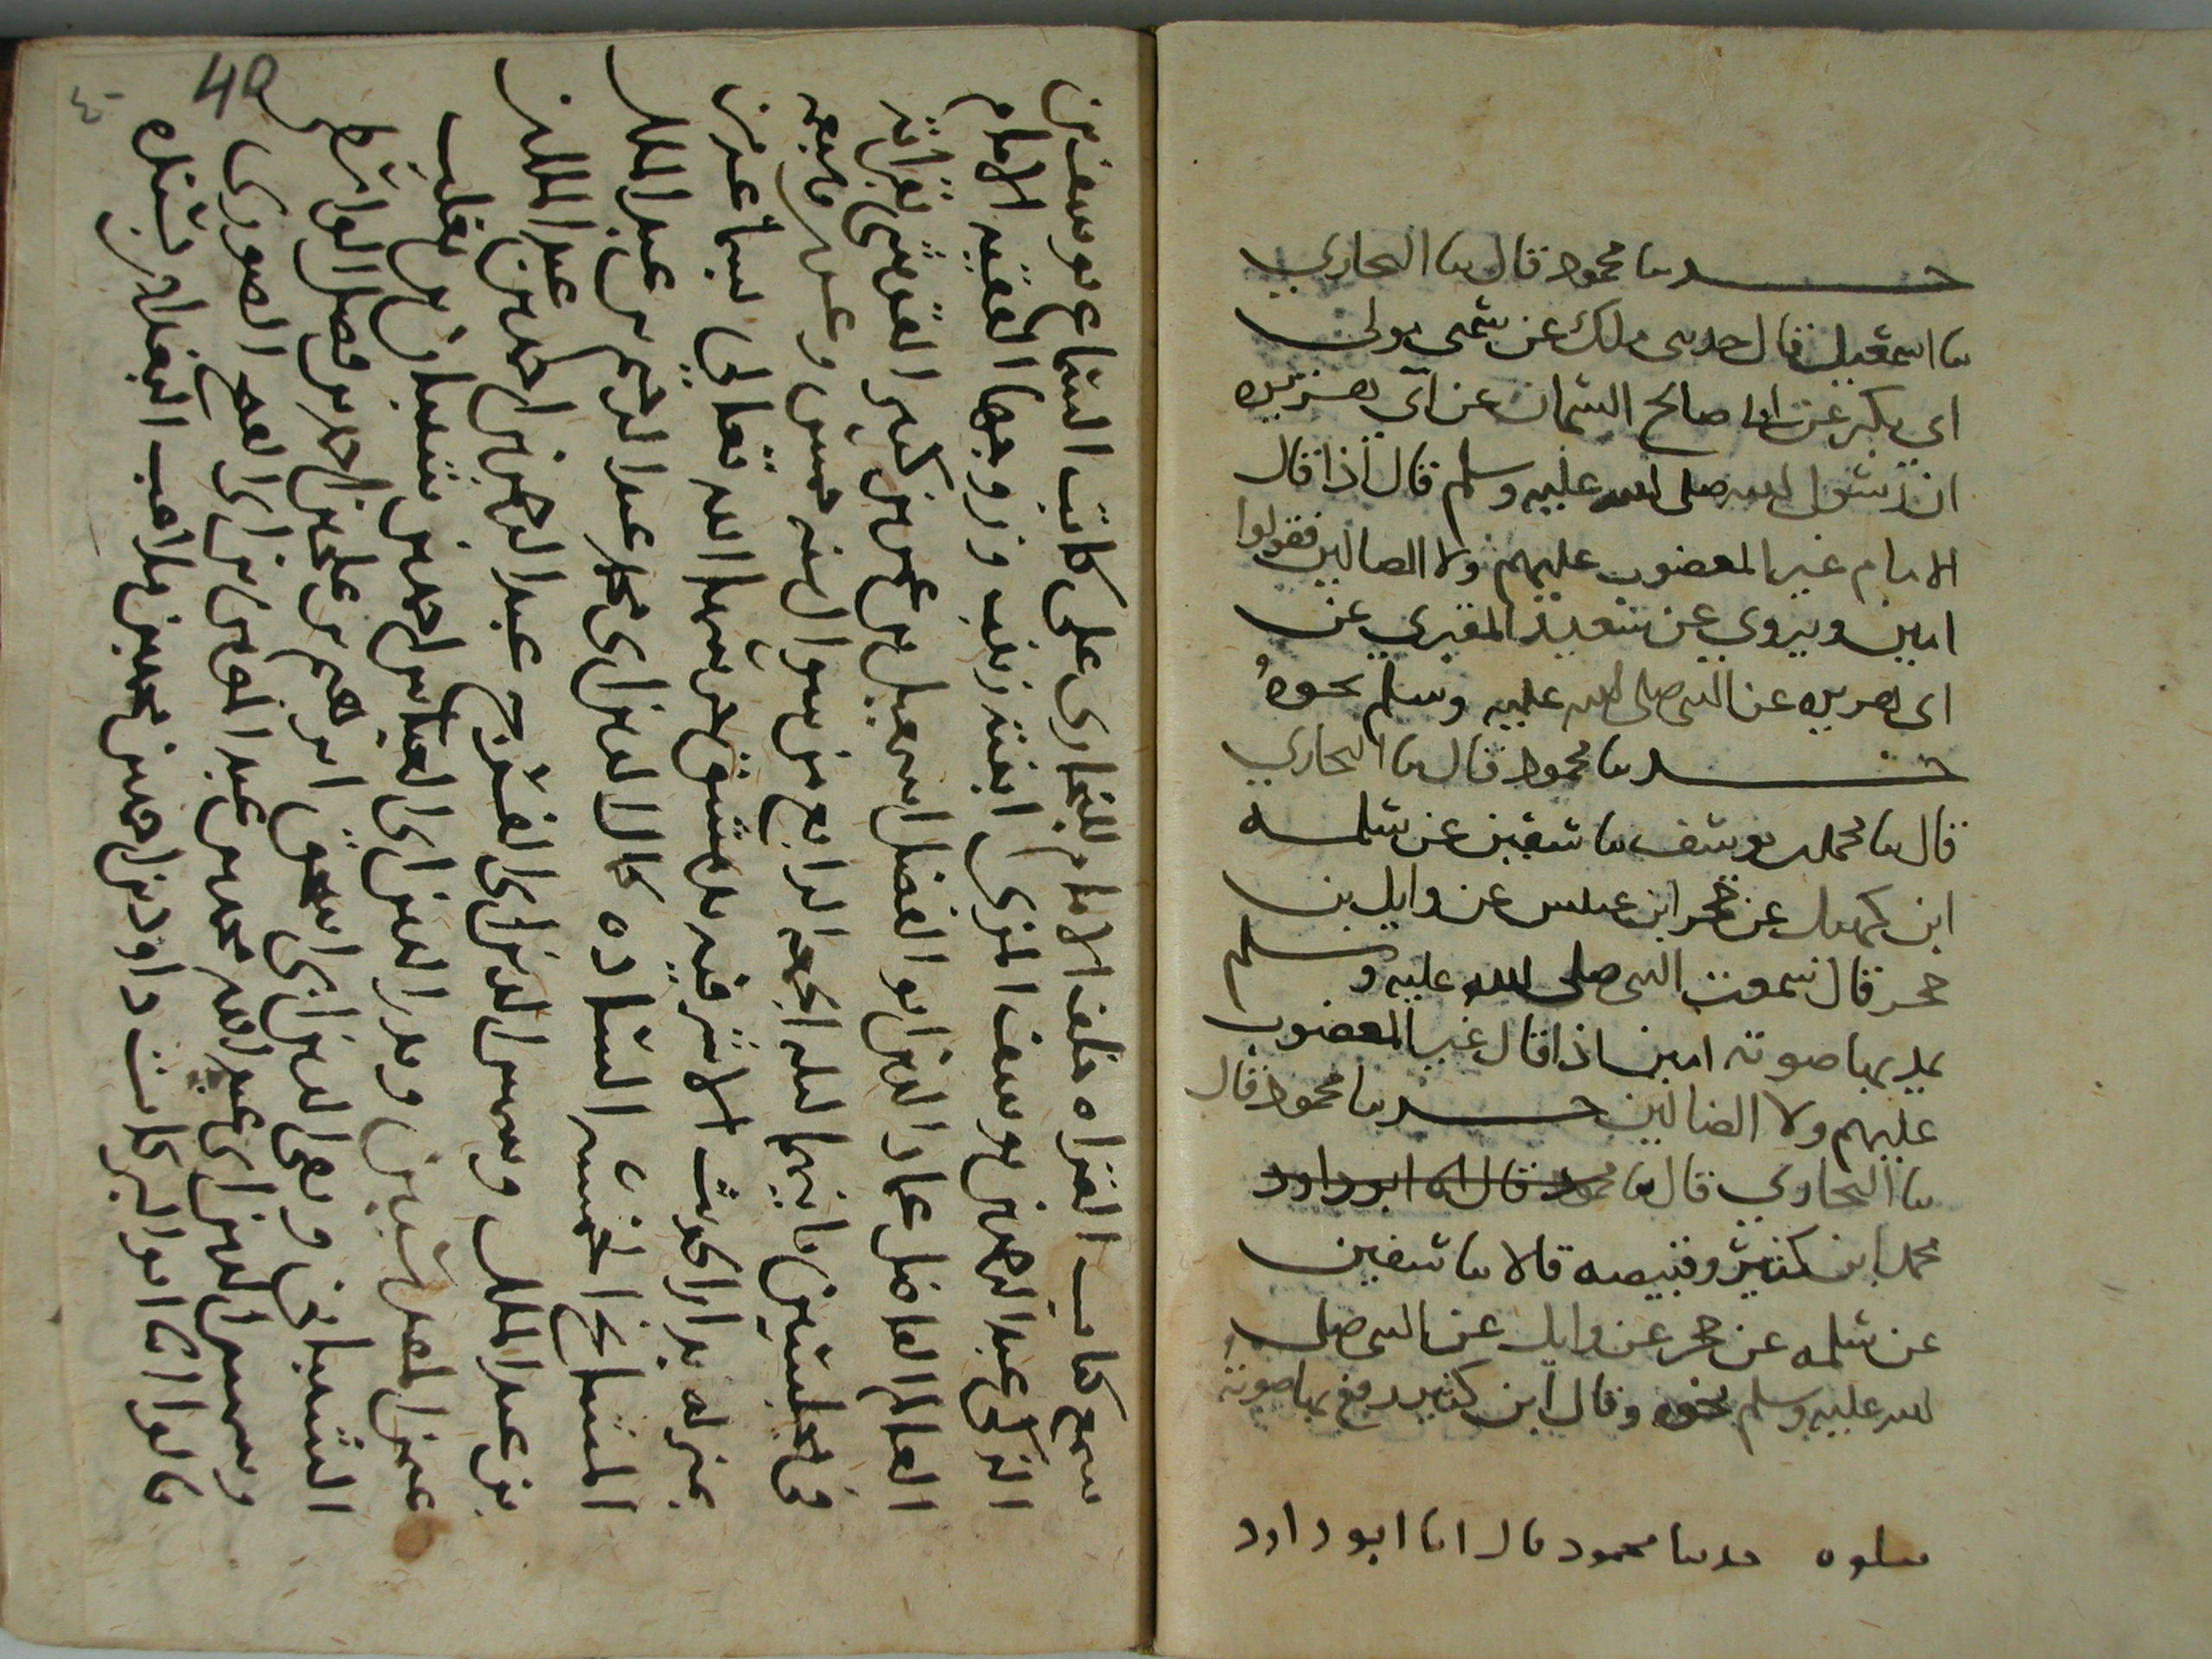 حدثنا محمود قال ثنا البخاري
ثنا اسمعيل قال حدثني ملك عن سمي مولى
ابي بكر عن ابي صالح السمان عن ابي هريره
ان رسول الله صلى الله عليه وسلم قال اذا قال
الامام غير المغضوب عليهم ولا الضالين فقولوا
امين ويروي عن سعيد المقبري عن
ابي هريره عن النبي صلى الله عليه وسلم نحوه
حدثنا محمود قال ثنا البخاري
قال ثنا محمد بن يوسف ثنا سفين عن سلمه
ابن كهيل عن حجر ابن عنبس عن وايل بن
حجر قال سمعت النبي صلى الله عليه وسلم
يمد بها صوته امين اذا قال غير المغضوب
عليهم ولا الضالين حدثنا محمود قال
ثنا البخاري قال ثنا محمود قال انا ابو داود
محمد ابن كثير وقبيصه قالا ثنا سفين
عن سلمه عن حجر عن وايل عن النبي صلى
الله عليه وسلم نحوه وقال ابن كثير رفع بها صوته
يتلوه حدثنا محمود قال انا ابو داود
40
٤٠
سمع كتاب القراه خلف الامام للبخاري على كاتب السماع يوسف بن
الزكي عبد الرحمن بن يوسف المزي ابنته زينب وزوجها الفقيه الامام
العالم الفاضل عماد الدين ابو الفضل اسمعيل بن عمر بن كثير القرشي بقراته
في مجلسين ثانيهما ليله الجمعه الرابع من شوال سنه خمس وعشرين وسبعمايه
بمنزله بدار الحديث الاشرفيه بدمشق حرسها الله تعالى
المشايخ الخمسه الساده كمال الدين ابي محمد عبد الرحيم بن عبد الملك
بن عبد الملك وشمس الدين ابي الفرج عبد الرحمن بن احمد بن عبد الملك بن
عثمن المقدسيين وبدر الدين ابي العباس احمد بن شيبان بن تغلب
الشيباني وتقي الدين ابي اسحق ابرهيم بن علي بن احمد بن فضل الواسطي
وشمس الدين ابي عبد الله محمد بن عبد المومن بن ابي الفتح الصوري
قالوا انا ابو البركات داود بن احمد بن محمد بن ملاعب البغدادي بسنده